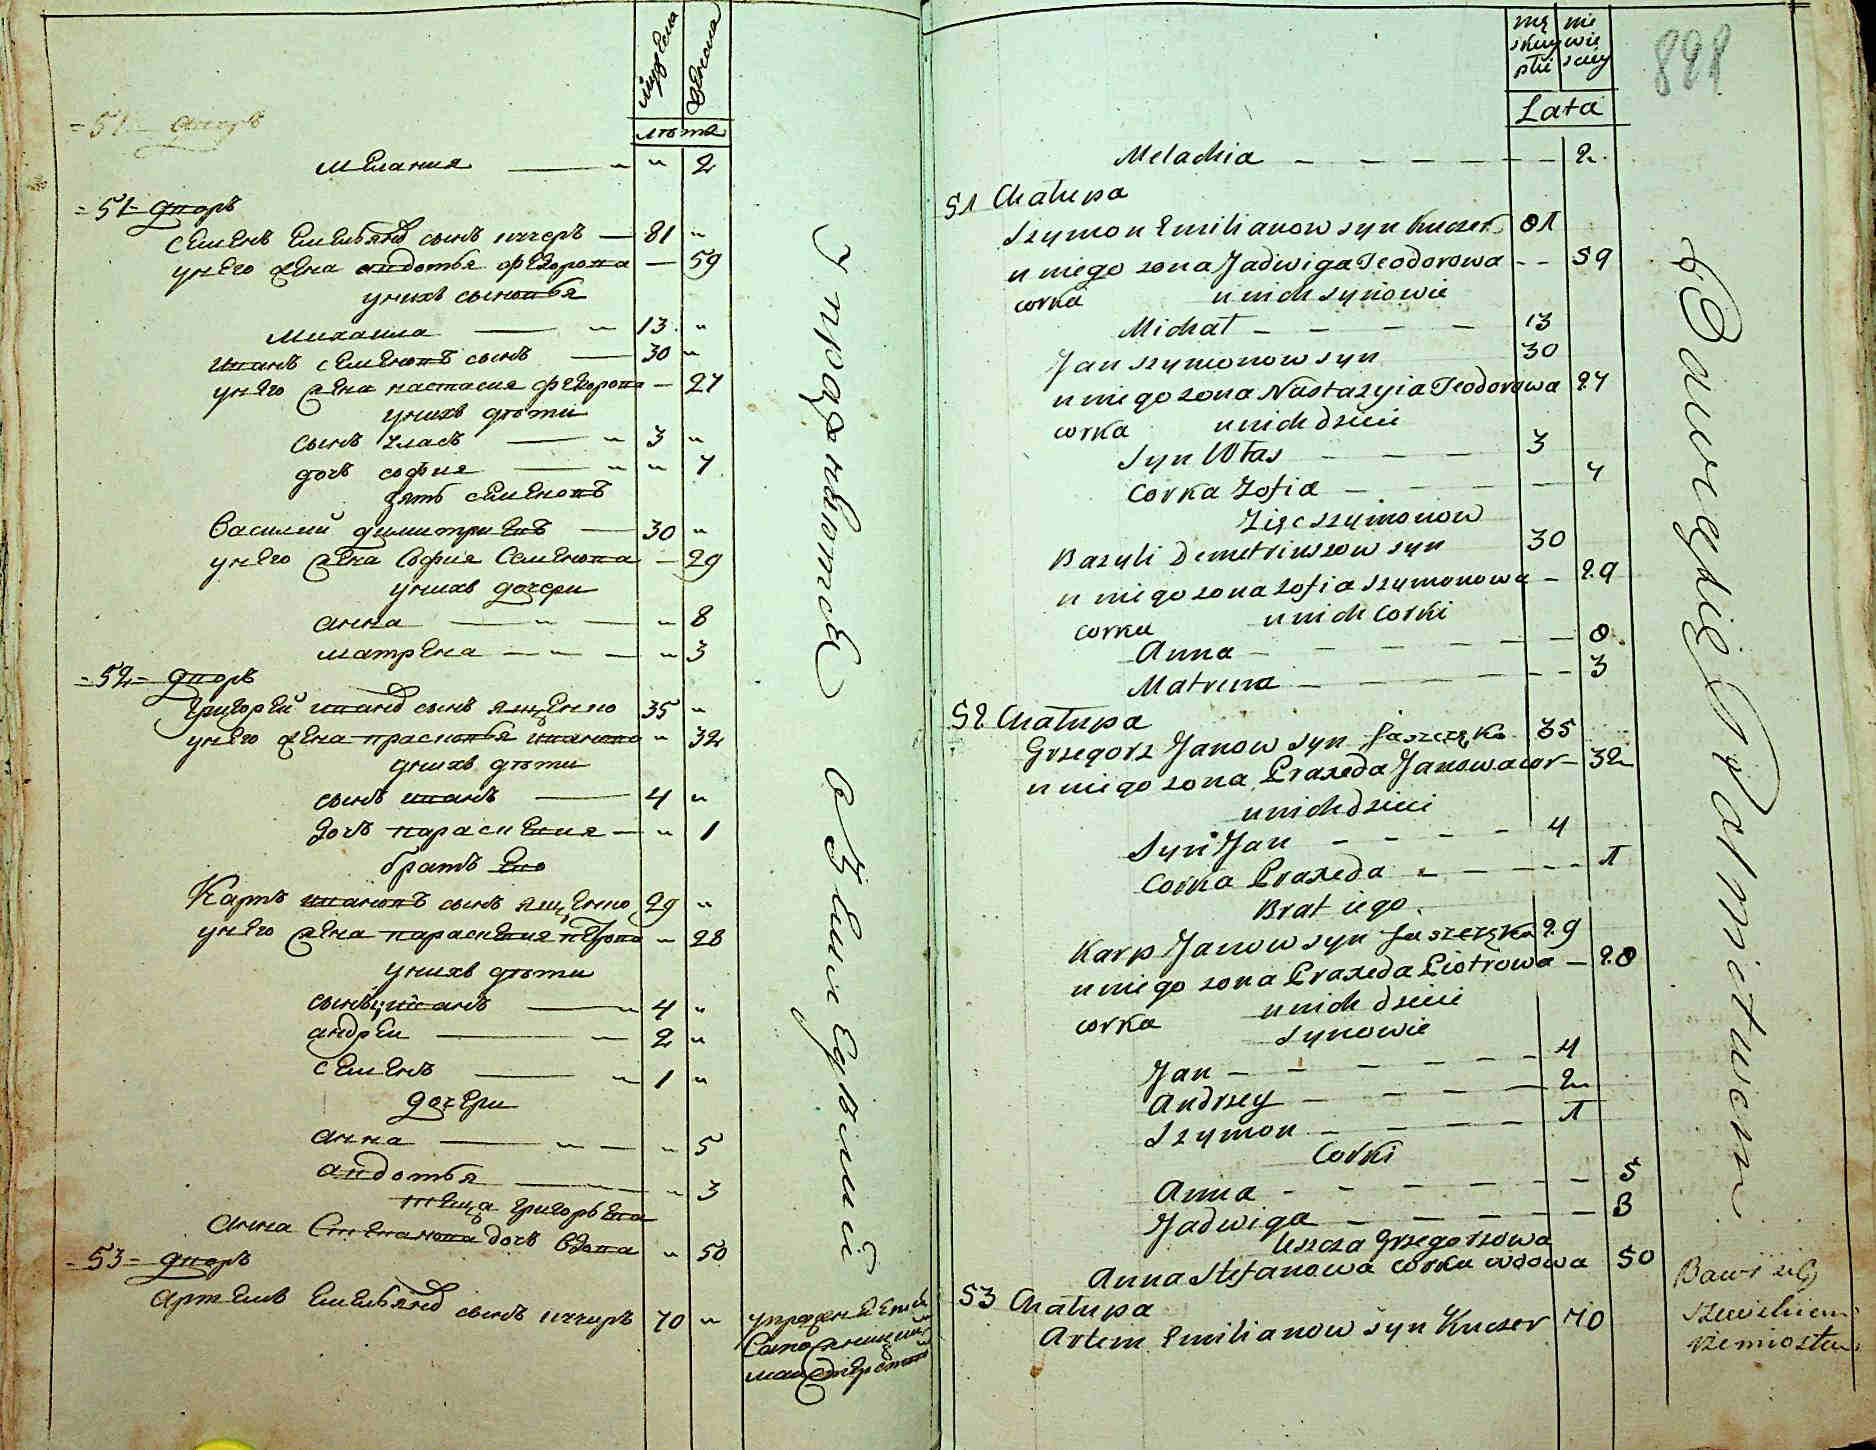 мужеска
женска
лѣта
51 дворъ
мелания — " " 2
51 дворъ
семенъ емельянов сынъ кучеръ — 81 "
у него жена авдотья федорова — 59
у нихъ сыновья
михаила — " 13 "
иванъ семеновъ сынъ — 30 "
у него жена настасия федорова — 27
у нихъ дѣти
сынъ улас — " 3 "
дочь софия — " " 7
зять семеновъ
василий димитриевъ — 30 "
у него жена софия семенова — 29
у нихъ дочери
анна — " — " 8
матрена — — — " 3
52 дворъ
григорей иванов сынъ ященко 35 "
у него жена прасковья иванова " 32
у нихъ дѣти
сынъ иванъ — 4 "
дочь параскевия — " 1
братъ ево
Карпъ ивановъ сынъ ященко 29 "
у него жена параскевия петрова " 28
у нихъ дѣти
сынъ иванъ — " 4 "
андрей — " 2 "
семенъ — " 1 "
дочери
анна — " " " 5
авдотья — " 3
теща григорьева
анна степанова дочь вдова " 50
53 дворъ
артемъ емельянов сынъ кучеръ 70 "
упражняется
сапожнымъ
мастерством
упражняются в земледѣлии
męskiey
płci
niewieściey
Lata
828
Melachia — — — — — — 2
51 Chałupa
Szymon Emilianow syn Kuczer 81
u niego zona Jadwiga Teodorowa — — 59
corka u nich synowie
Michał — — — — 13
Jan szymonow syn 30
u niego zona Nastazyia Teodorowa 27
corka u nich dzieci
Syn Własz — — — 3
Corka Zofia — — — — — 7
Zięc szymonow
Bazyli Demetriuszow syn 30
u niego zona Zofia szymonowa — 29
corka u nich Corki
Anna — — — — — — 8
Matruna — — — — — — 3
52 Chałupa
Grzegorz Janow syn Jaszczęko 35
u niego zona Praxeda Janowa cor— 32
u nich dzieci
Syn Jan — — — — 4
Corka Praxeda — — — — — 1
Brat iego
Karp Janow syn Jaszczęko 29
u niego zona Praxeda Piotrowa — 28
corka u nich dzieci
synowie
Jan — — — — — — 4
Andrzey — — — — 2
Szymon — — — — 1
Corki
Anna — — — — — — 5
Jadwiga — — — — — 3
Teszcza Grzegorzowa
Anna Stefanowa corka wdowa 50
53 Chałupa
Artem Emilianow syn Kuczer 70
Bawi się
szewskiem
rzemiosłem